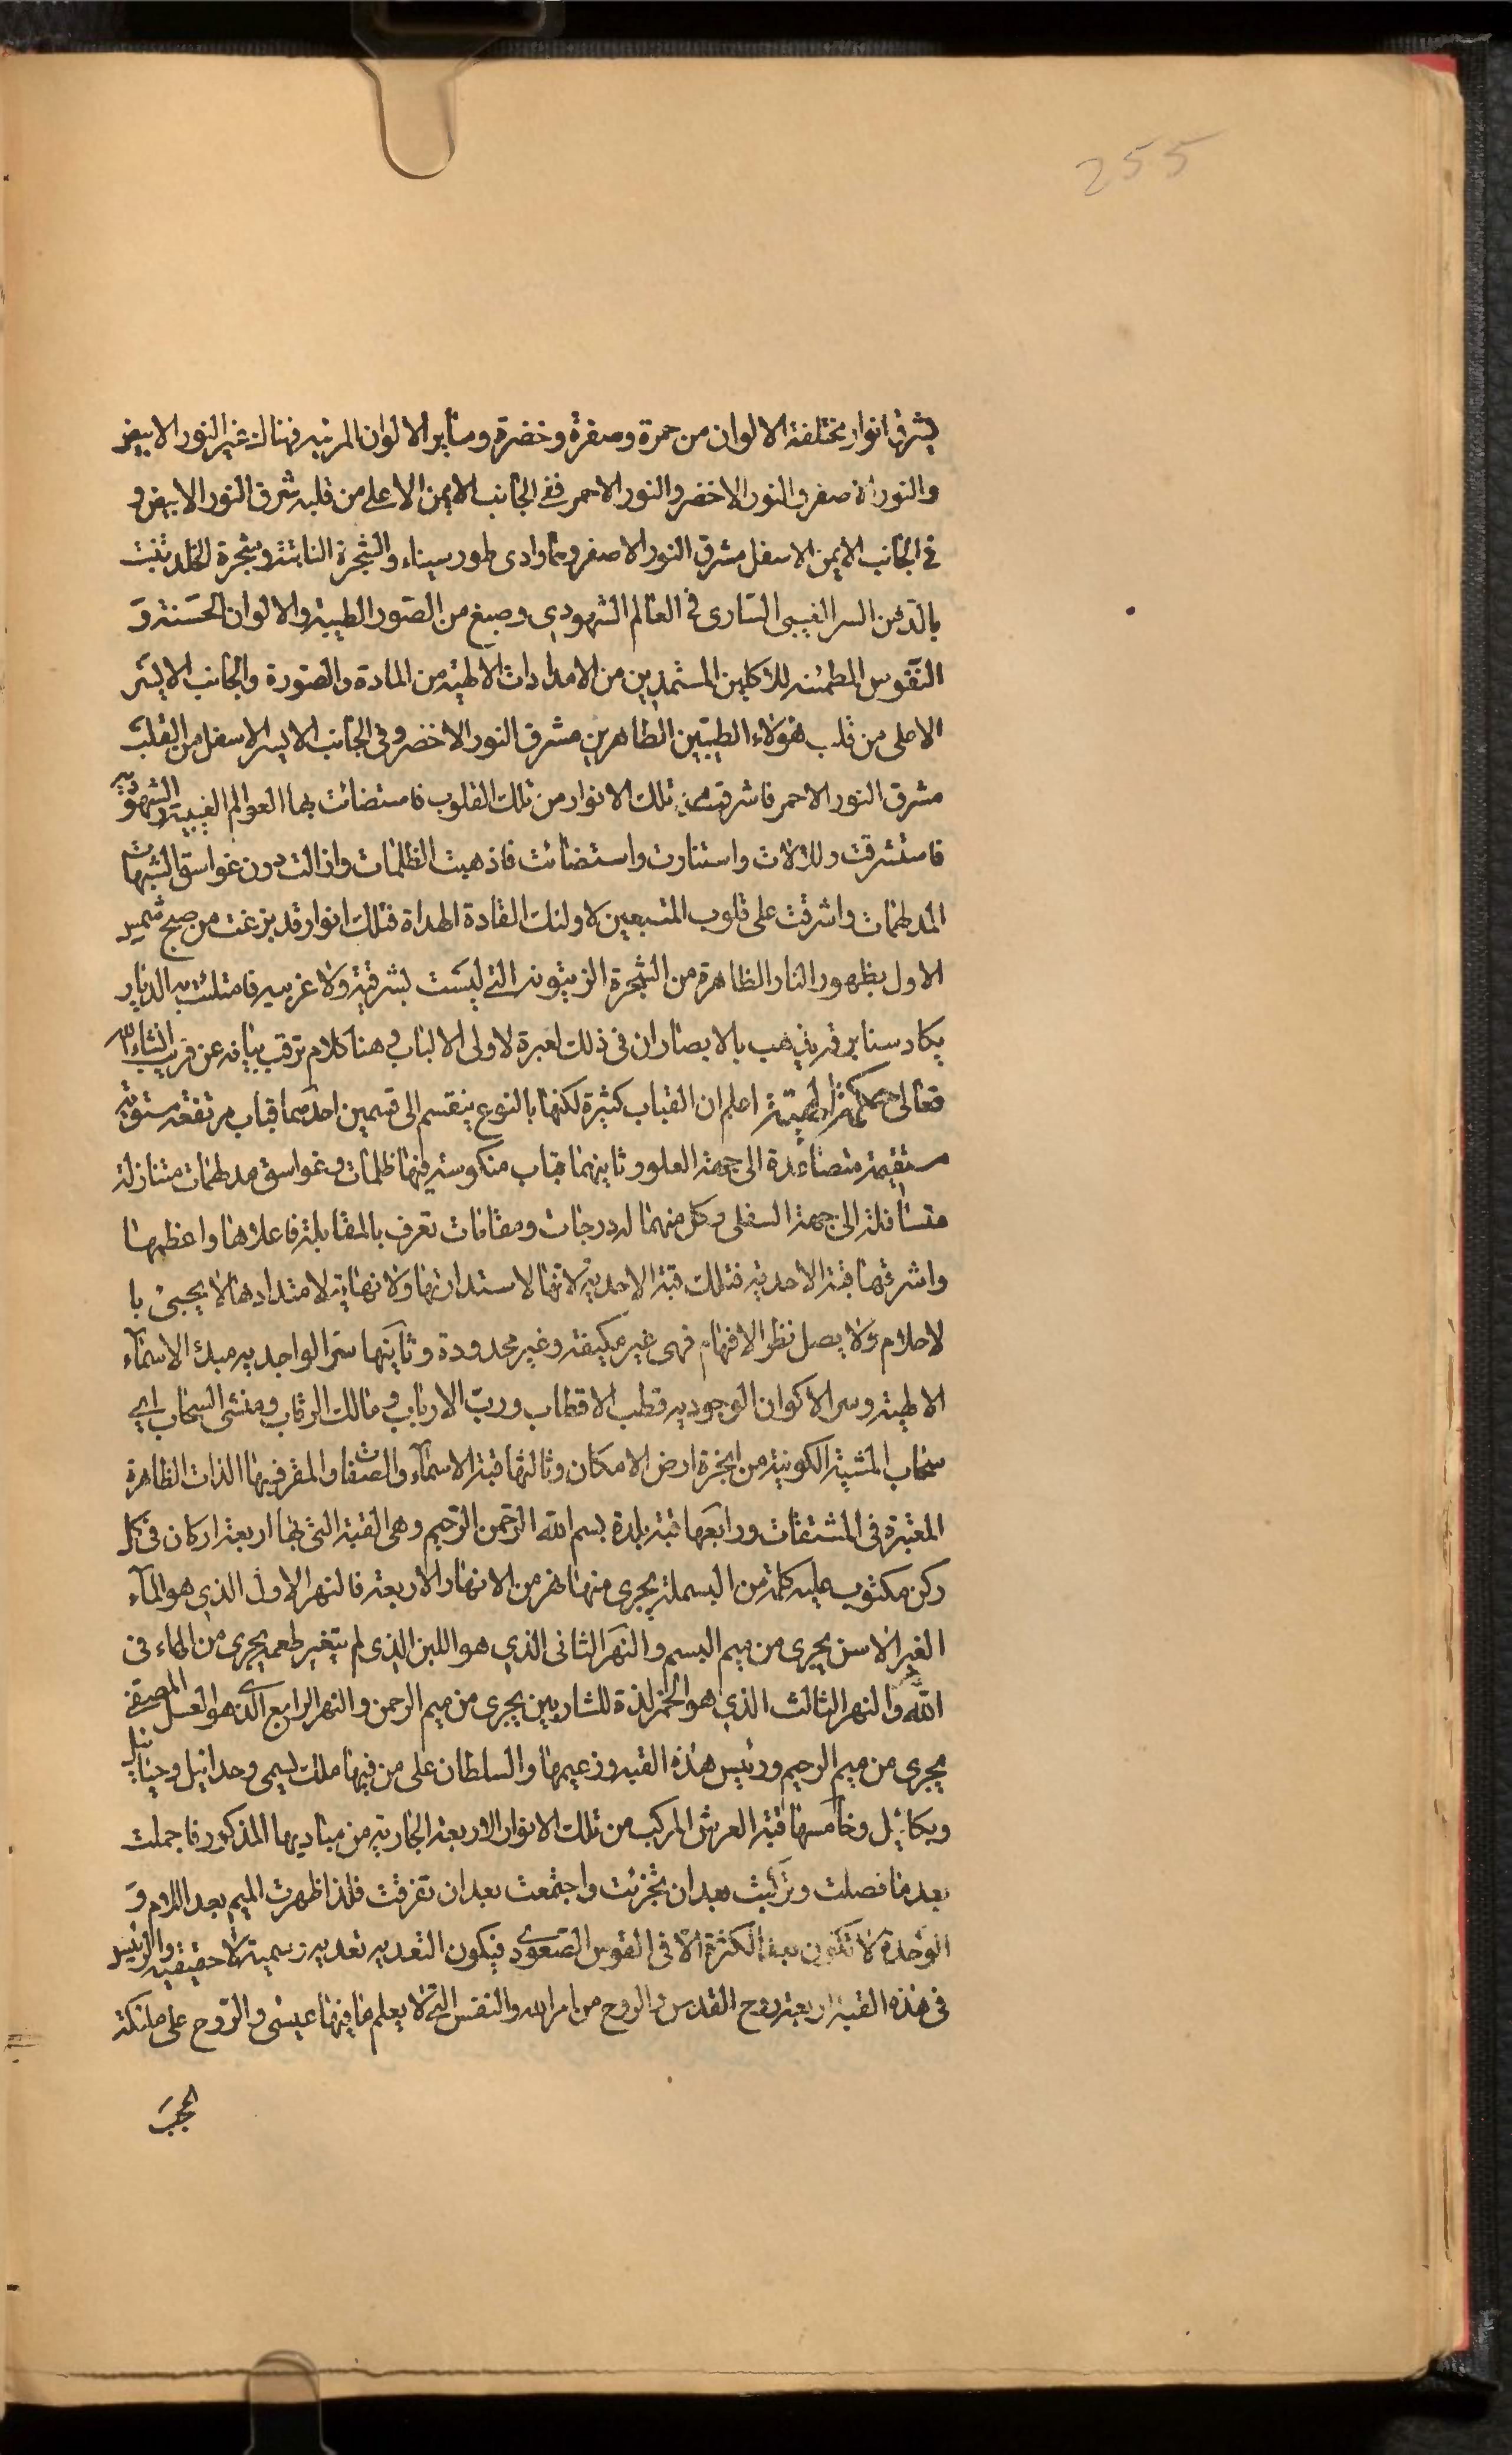 255
يشرقها انوار مختلفة الالوان من حمرة وصفرة وخضرة وسائر الالوان المرئيه فهنالك غير النور الابيض
والنور الاصفر والنور الاخضر والنور الاحمر ففى الجانب الايمن الاعلى من قلبه شرق النور الابيض و
فى الجانب الايمن الاسفل مشرق النور الاصفر وهما وادى طور سيناء والشجرة النابتة وشجرة الخلد تنبت
بالدهن السر الغيبى السارى فى العالم الشهودى وصبغ من الصور الطيبة والالوان الحسنة و
النفوس المطمئنه للاكلين المستمدين من الامدادات الالهية من المادة والصورة والجانب الايسر
الاعلى من قلب هؤلاء الطيبين الطاهرين مشرق النور الاخضر وفى الجانب الايسر الاسفل من القلب
مشرق النور الاحمر فاشرقت تلك الانوار من تلك القلوب فاستضائت بها العوالم الغيبية والشهوديه
فاستشرقت وتلألأت واستنارت واستضائت فاذهبت الظلمات وازالت دون غواسق الشبهات
المدلهمات واشرقت على قلوب المتبعين لاولئك القادة الهداة فتلك انوار قد بزغت من صبح شمس
الاول بظهور النار الظاهرة من الشجرة الزيتونه التى ليست بشرقية ولا غربيه فامتلئت به الديار
يكاد سنا برقه يذهب بالابصار ان فى ذلك لعبرة لاولى الالباب وهنا كلام ترقب بيانه عن قريب انشاء الله
تعالى حكمة الهية اعلم ان القباب كثيرة لكنها بالنوع ينقسم الى قسمين احدهما قباب مرتفعة مستويه
مستقيمة متصاعدة الى جهة العلو وثانيهما قباب منكوسة فيها ظلمات وغواسق مدلهمات متنازلة
متسافلة الى جهة السفلى وكل منهما له درجات ومقامات تعرف بالمقابلة فاعلاها واعظمها
واشرفها قبة الاحديه فتلك قبة الاحدية لانها لا استدارتها ولا نهاية لامتدادها لا يحيى با
لاحلام ولا يصل نظر الافهام فهى غير مكيفة وغير محدودة وثانيها سر الواحديه مبدء الاسماء
الالهية وسر الاكوان الوجوديه قطب الاقطاب ورب الارباب ومالك الرقاب ومنشئ السحاب اى
سحاب المشية الكونية من ابخرة ارض الامكان وثالثها قبة الاسماء والصفات والمقر فيها الذات الظاهرة
المعتبرة فى المشتقات ورابعها قبة بلدة بسم الله الرحمن الرحيم وهى القبة التى لها اربعة اركان فى كل
ركن مكتوب عليه كلمة من البسملة يجرى منها نهر من الانهار الاربعة فالنهر الاول الذى هو الماء
الغير الاسن يجرى من ميم البسم والنهر الثانى الذى هو اللبن الذى لم يتغير طعمه يجرى من الهاء فى
الله والنهر الثالث الذى هو الخمر لذة للشاربين يجرى من ميم الرحمن والنهر الرابع الذى هو العسل المصفى
يجرى من ميم الرحيم ورئيس هذه القبه وزعيمها والسلطان على من فيها ملك يسمى وحدائيل وحيائيل
ويكائيل وخامسها قبة العرش المركب من تلك الانوار الاربعة الجارية من مباديها المذكور فاجملت
بعد ما فصلت وتركبت بعد ان تجزئت واجتمعت بعد ان تفرقت فلذا ظهرت الميم بعد اللام و
الوحدة لا تكون بعد الكثرة الا فى القوس الصعودى فيكون البعديه بعديه رسمية لا حقيقيه والرئيس
فى هذه القبة اربعة روح القدس والروح من امر الله والنفس التى لا يعلم ما فيها عيسى والروح على ملئكة
الحجب